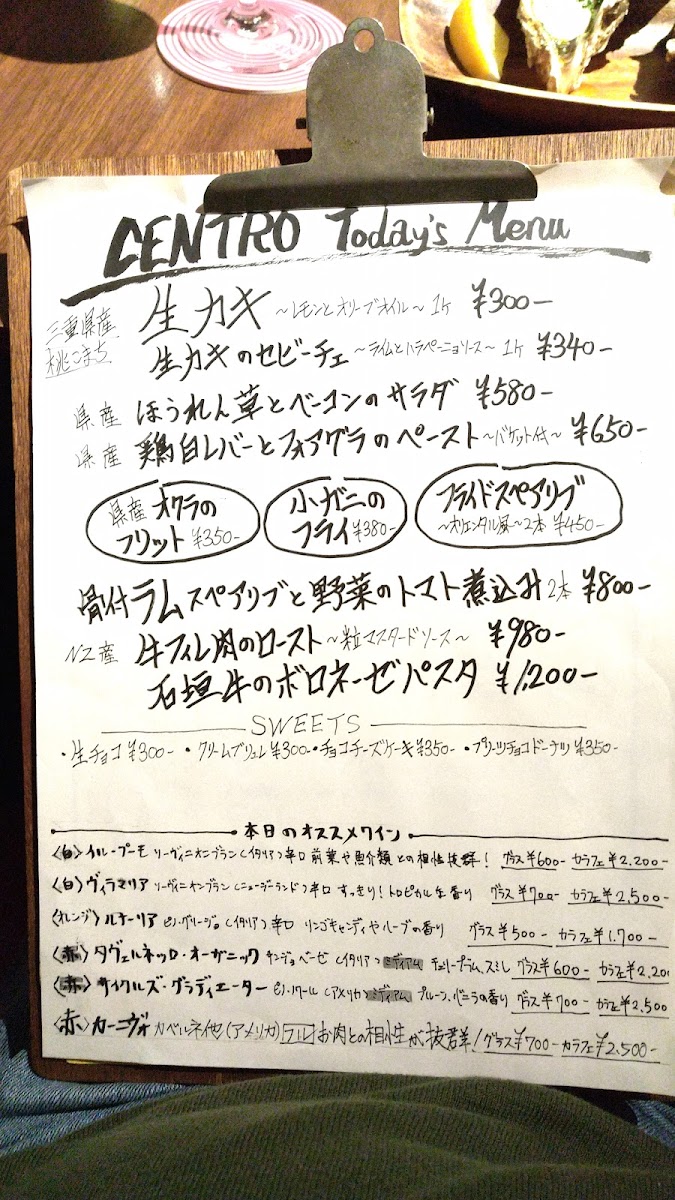 CENTRO Today's Menu
三重県産 生カキ 〜レモンとオリーブオイル〜 1ケ ¥300-
桃こまち 生カキのセビーチェ 〜ライムとハラペーニョソース〜 1ケ ¥340-
県産 ほうれん草とベーコンのサラダ ¥580-
県産 鶏白レバーとフォアグラのペースト 〜バケット付〜 ¥650-
県産 オクラの
フリット ¥350-
小ガニの
フライ ¥380-
フライドスペアリブ
〜オリエンタル風〜 2本 ¥450-
骨付ラムスペアリブと野菜のトマト煮込み 2本 ¥800-
NZ産 牛フィレ肉のロースト 〜粒マスタードソース〜 ¥980-
石垣牛のボロネーゼパスタ ¥1,200-
SWEETS
・生チョコ ¥300- ・クリームブリュレ ¥300- ・チョコチーズケーキ ¥350- ・プリーツチョコドーナツ ¥350-
本日のオススメワイン
〈白〉イル・プーモ ソーヴィニオンブラン (イタリア) 辛口 前菜や魚介類との相性抜群! グラス ¥600- カラフェ ¥2,200-
〈白〉ヴィラマリア ソーヴィニヤンブラン (ニュージーランド) 辛口 すっきり!トロピカルな香り グラス ¥700- カラフェ ¥2,500-
〈オレンジ〉ルナーリア ピノ・グリージョ (イタリア) 辛口 リンゴキャンディやハーブの香り グラス ¥500- カラフェ ¥1,700-
〈赤〉タヴェルネッロ・オーガニック サンジョベーゼ (イタリア) ミディアム チェリープラム、スミレ グラス ¥600- カラフェ ¥2,200
〈赤〉サイクルズ・グラディエーター ピノ・ノワール (アメリカ) ミディアム プルーン、バニラの香り グラス ¥700- カラフェ ¥2,500
〈赤〉カーニヴォ カベルネ他 (アメリカ) フル お肉との相性が抜群! グラス ¥700- カラフェ ¥2,500-